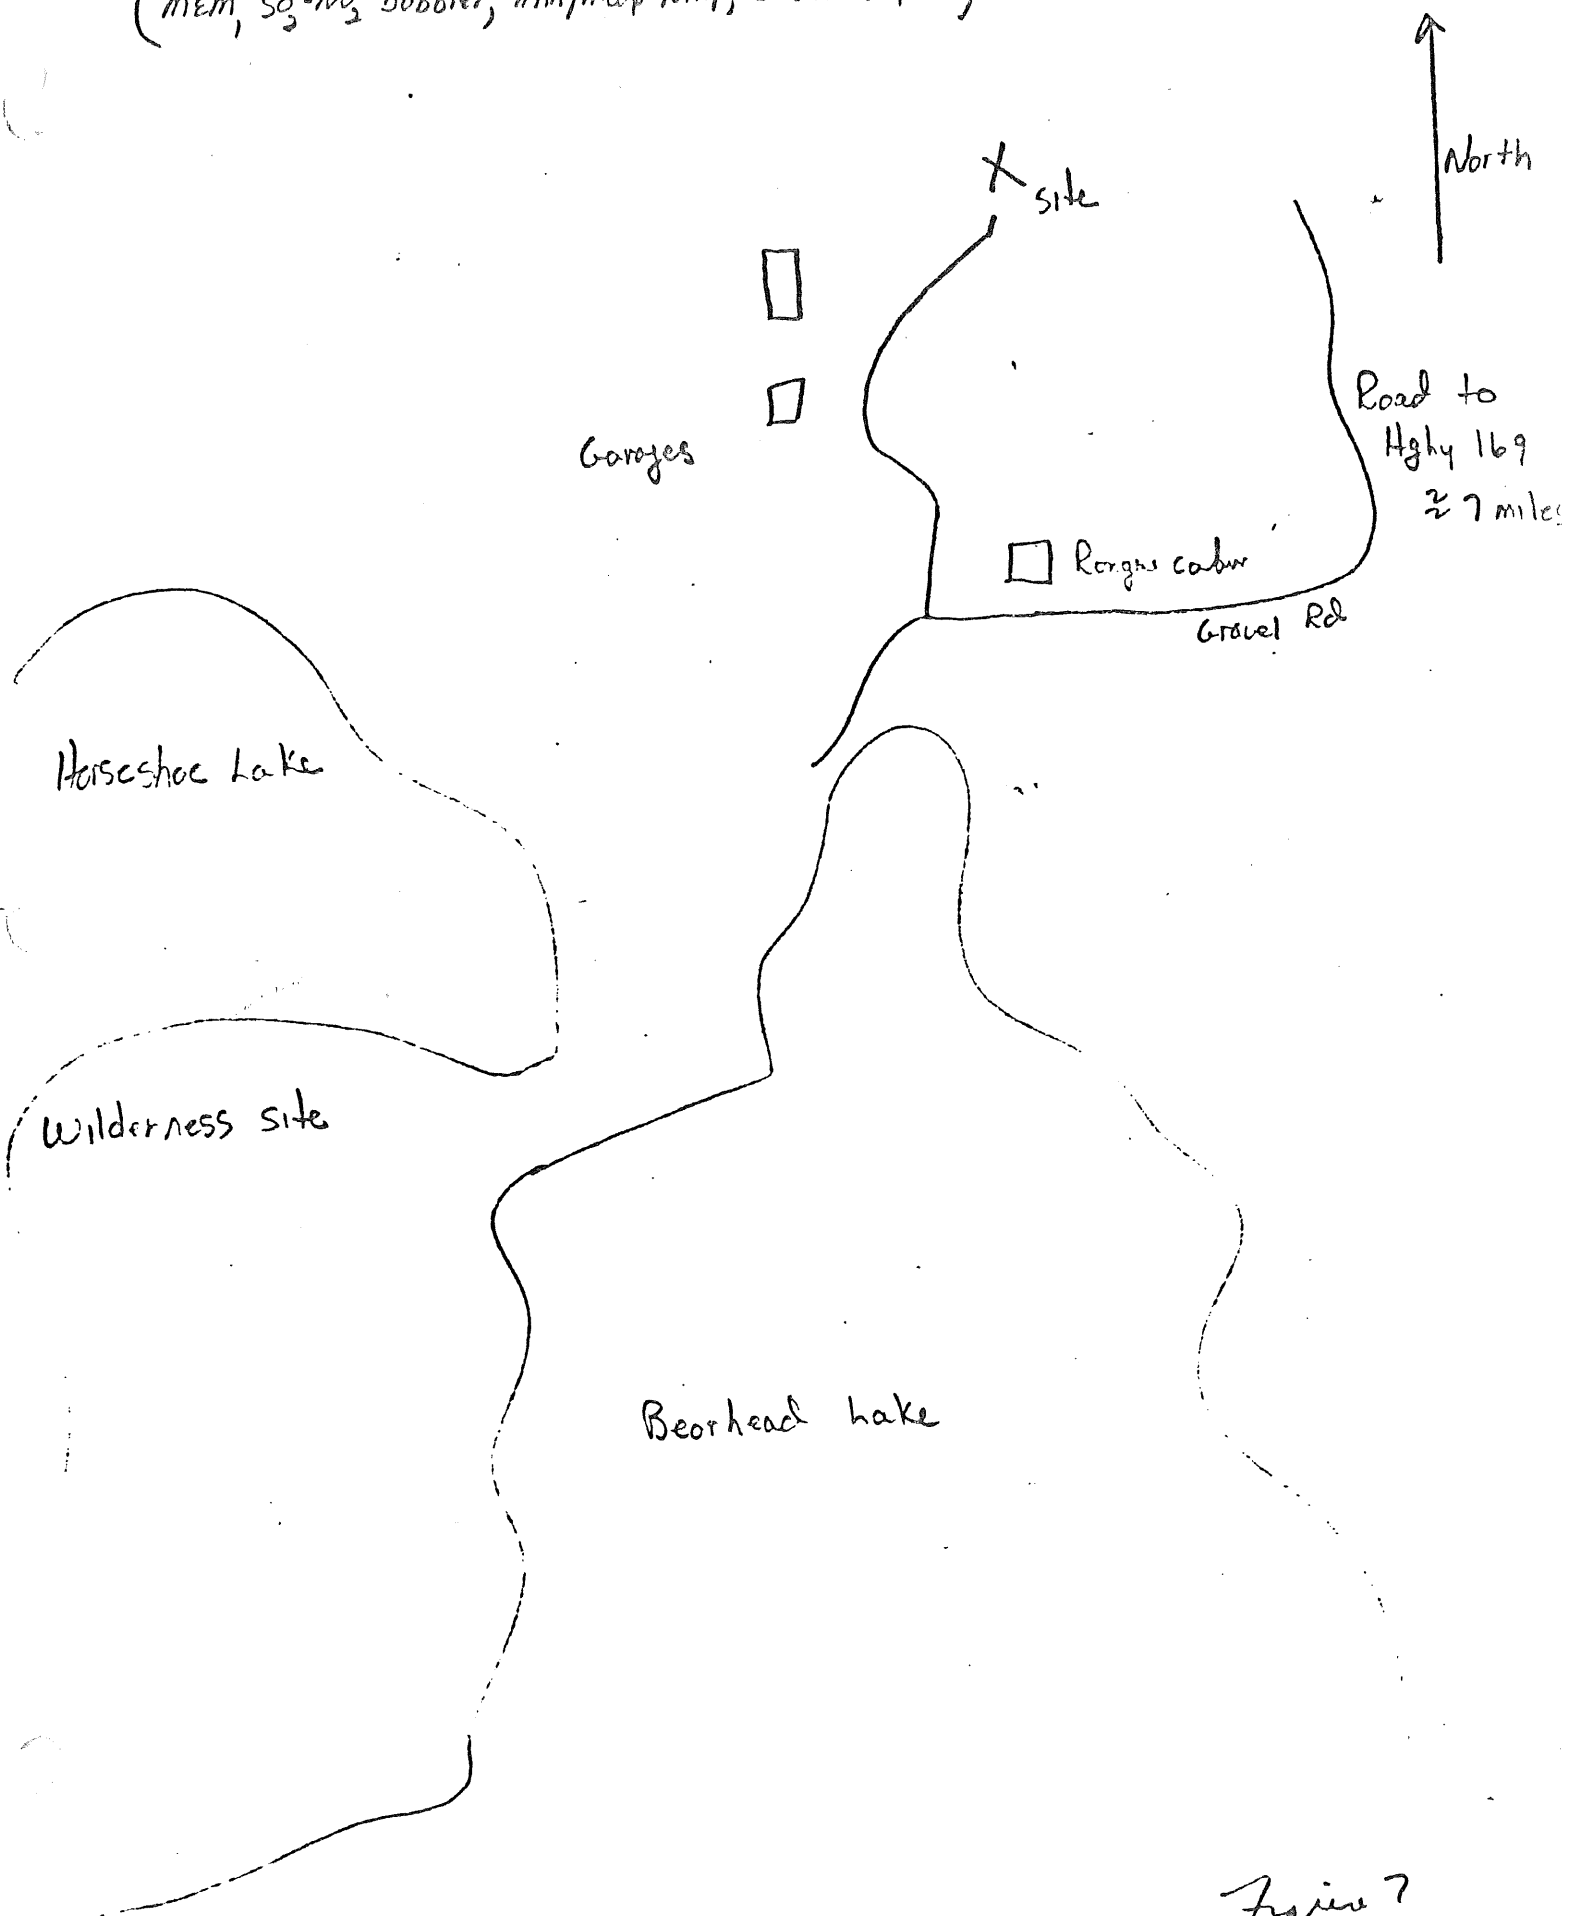 (MEM, SO2-NO2 bubbler,
North
X site
Road to
Hghy 169
≈ 7 miles
Garages
Rangers cabin
Gravel Rd
Horseshoe Lake
Wilderness site
Bearhead Lake
Figure 7